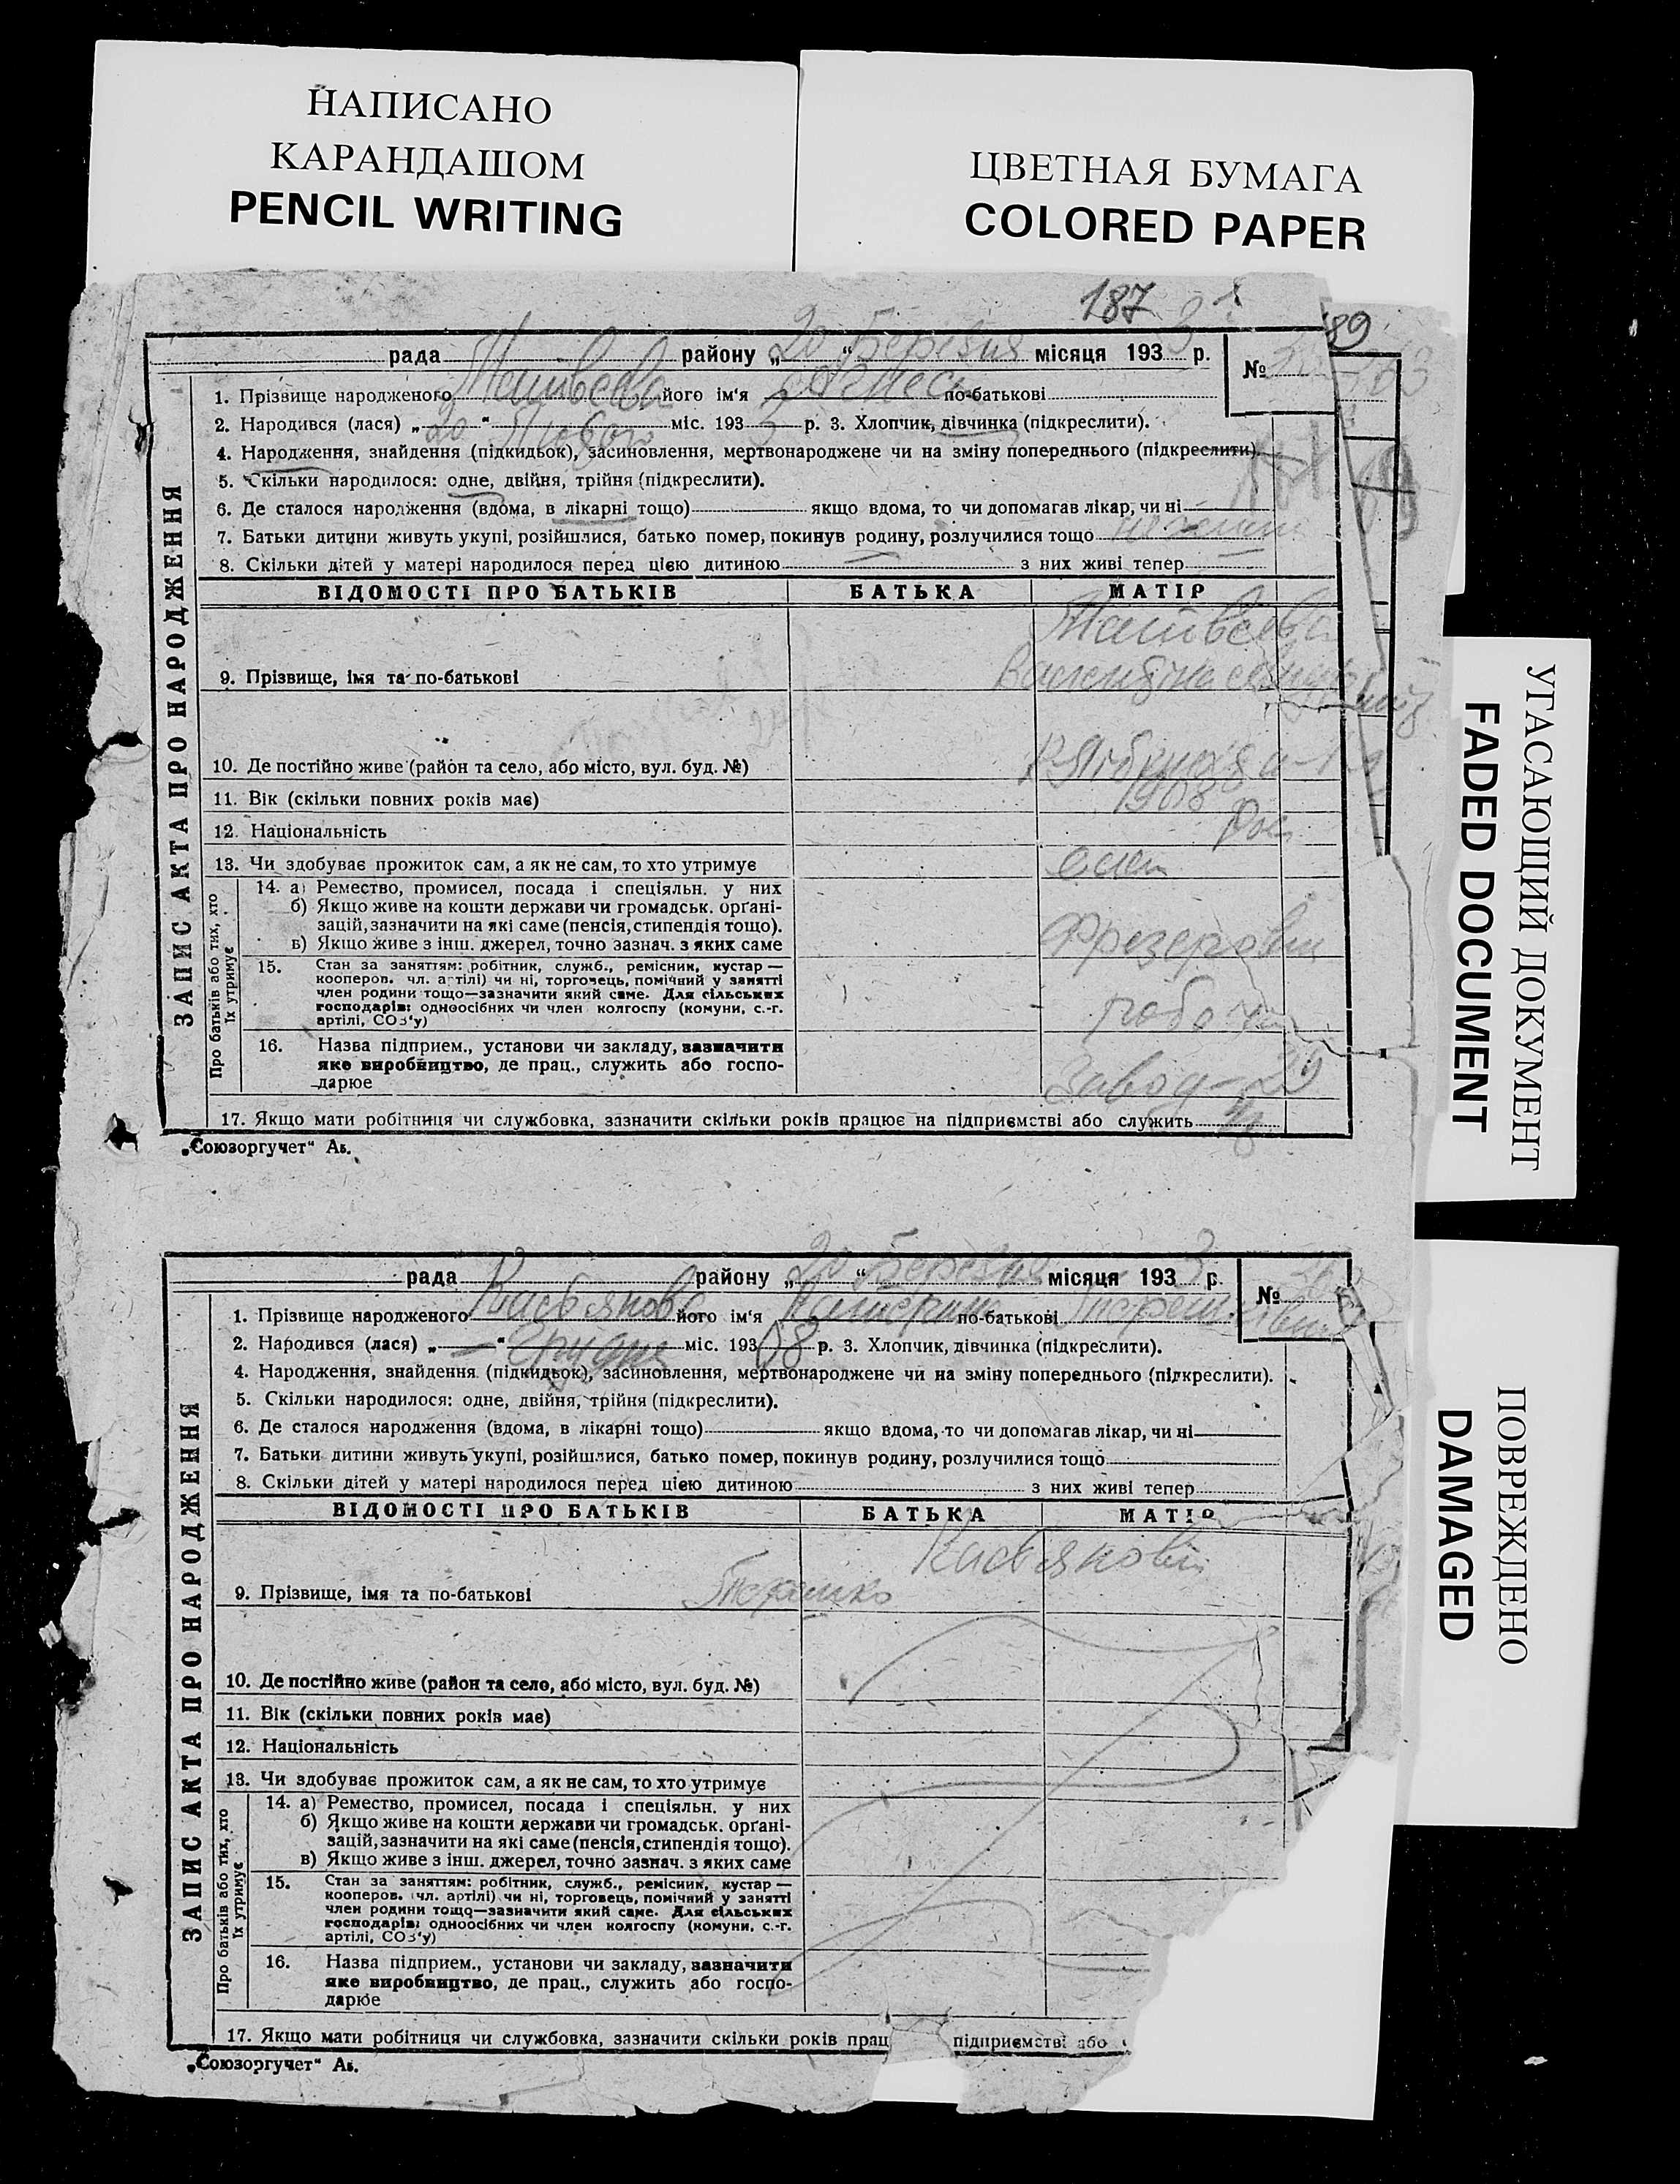 НАПИСАНО
КАРАНДАШОМ
PENCIL WRITING
ЦВЕТНАЯ БУМАГА
COLORED PAPER
187
89
рада району „20“ Березня місяця 1933 р. №
1. Прізвище народженого Матвеева його ім'я по-батькові
2. Народився (лася) „20“ Лютого міс. 1933 р. 3. Хлопчик, дівчинка (підкреслити).
4. Народження, знайдення (підкидьок), засиновлення, мертвонароджене чи на зміну попереднього (підкреслити).
5. Скільки народилося: одне, двійня, трійня (підкреслити).
6. Де сталося народження (вдома, в лікарні тощо) якщо вдома, то чи допомагав лікар, чи ні
7. Батьки дитини живуть укупі, розійшлися, батько помер, покинув родину, розлучилися тощо
8. Скільки дітей у матері народилося перед цією дитиною — з них живі тепер
ВІДОМОСТІ ПРО БАТЬКІВ БАТЬКА МАТІР
Матвеева
9. Прізвище, імя та по-батькові
10. Де постійно живе (район та село, або місто, вул. буд. №)
11. Вік (скільки повних років має) 1908
12. Національність Рос
13. Чи здобуває прожиток сам, а як не сам, то хто утримує сам
14. а) Ремество, промисел, посада і спеціяльн. у них
б) Якщо живе на кошти держави чи громадськ. органі-
зацій, зазначити на які саме (пенсія, стипендія тощо).
в) Якщо живе з інш. джерел, точно зазнач. з яких саме
15. Стан за заняттям: робітник, служб., ремісник, кустар —
кооперов. чл. артілі) чи ні, торговець, помічний у занятті
член родини тощо—зазначити який саме. Для сільських
господарів: одноосібних чи член колгоспу (комуни, с.-г.
артілі, СОЗ'у)
16. Назва підприєм., установи чи закладу, зазначити
яке виробництво, де прац., служить або госпо-
дарює
Завод-29
17. Якщо мати робітниця чи службовка, зазначити скільки років працює на підприємстві або служить
Про батьків або тих, хто
їх утримує
ЗАПИС АКТА ПРО НАРОДЖЕННЯ
„Союзоргучет“ Ав.
рада району „20“ Березня місяця 1933 р. №
1. Прізвище народженого Касьянова його ім'я Катерина по-батькові
2. Народився (лася) „—“ Грудня міс. 19308 р. 3. Хлопчик, дівчинка (підкреслити).
4. Народження, знайдення (підкидьок), засиновлення, мертвонароджене чи на зміну попереднього (підкреслити).
5. Скільки народилося: одне, двійня, трійня (підкреслити).
6. Де сталося народження (вдома, в лікарні тощо) якщо вдома, то чи допомагав лікар, чи ні
7. Батьки дитини живуть укупі, розійшлися, батько помер, покинув родину, розлучилися тощо
8. Скільки дітей у матері народилося перед цією дитиною з них живі тепер
ВІДОМОСТІ ПРО БАТЬКІВ БАТЬКА МАТІР
Касьянови
9. Прізвище, імя та по-батькові
10. Де постійно живе (район та село, або місто, вул. буд. №)
11. Вік (скільки повних років має)
12. Національність
13. Чи здобуває прожиток сам, а як не сам, то хто утримує
14. а) Ремество, промисел, посада і спеціяльн. у них
б) Якщо живе на кошти держави чи громадськ. органі-
зацій, зазначити на які саме (пенсія, стипендія тощо).
в) Якщо живе з інш. джерел, точно зазнач. з яких саме
15. Стан за заняттям: робітник, служб., ремісник, кустар —
кооперов. чл. артілі) чи ні, торговець, помічний у занятті
член родини тощо—зазначити який саме. Для сільських
господарів: одноосібних чи член колгоспу (комуни, с.-г.
артілі, СОЗ'у)
16. Назва підприєм., установи чи закладу, зазначити
яке виробництво, де прац., служить або госпо-
дарює
17. Якщо мати робітниця чи службовка, зазначити скільки років прац підприємстві або
Про батьків або тих, хто
їх утримує
ЗАПИС АКТА ПРО НАРОДЖЕННЯ
„Союзоргучет“ Ав.
УГАСАЮЩИЙ ДОКУМЕНТ
FADED DOCUMENT
ПОВРЕЖДЕНО
DAMAGED